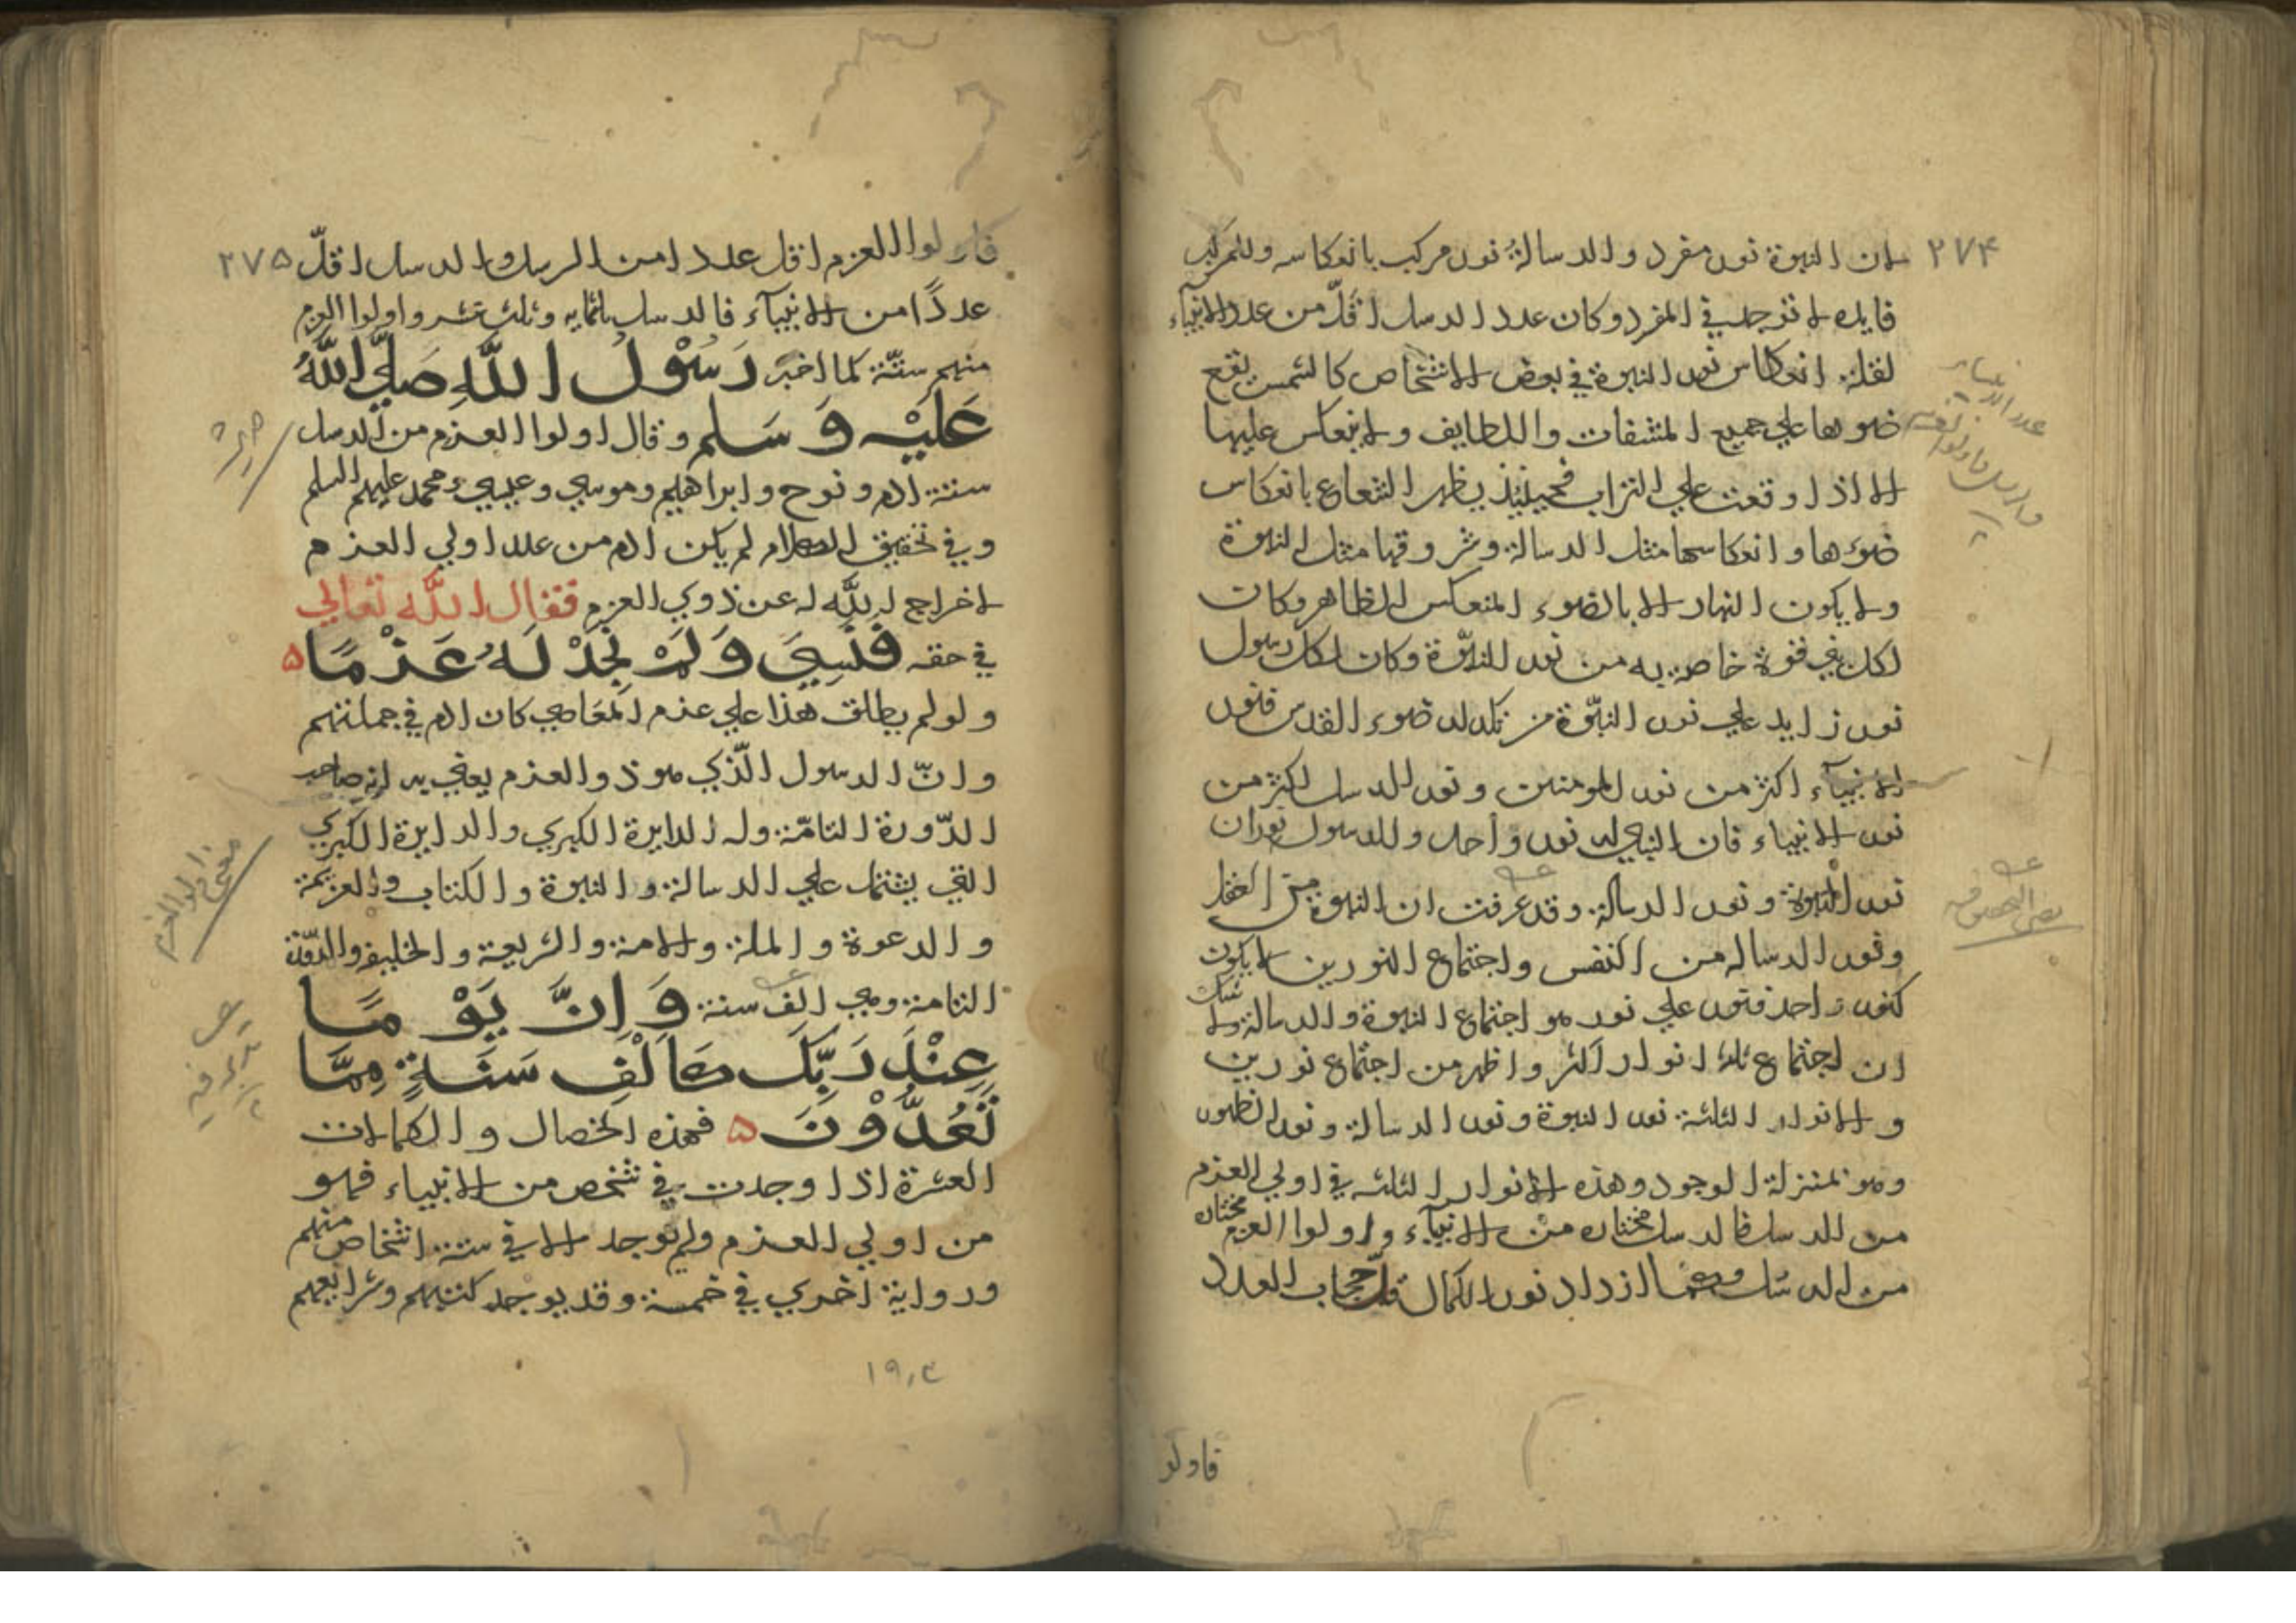 ٢٧۴
ان النبوة نور مفرد والرسالة نور مركب بانعكاسه وللمركب
فايده لا توجد في المفرد وكان عدد الرسل اقلّ من عدد الانبيآء
لقلة انعكاس نور النبوة في بعض الاشخاص كالشمس تقع
ضوءها علي جميع المشفات واللطايف ولا ينعكس عليها
الا اذا وقعت علي التراب فحينئذ يظهر الشعاع بانعكاس
ضوءها وانعكاسها مثل الرسالة وشروقها مثل النبوة
ولا يكون النهار الا بالضوء المنعكس الظاهر وكان
لكل نبي قوة خاصية من نور النبوّة وكان لكل رسول
نور زايد علي نور النبوّة من تلالؤ ضوء القدس فنور
الانبيآء اكثر من نور المومنين ونور الرسل اكثر من
نور الانبياء فان النبي له نور واحد وللرسول نوران
نور النبوة ونور الرسالة وقد عرفت ان النبوة من العقل
ونور الرساله من النفس واجتماع النورين لا يكون
كنور واحد فنور علي نور هو اجتماع النبوة والرسالة ولا شك
ان اجتماع ثلاثة انوار اكثر واظهر من اجتماع نورين
والانوار الثلثة نور النبوة ونور الرسالة ونور الظهور
وهو بمنزلة الوجود وهذه الانوار الثلثه في اولي العزم
من الرسل فالرسل مختاره من الانبيآء واولوا العزم مختاره
من الرسل ومهما ازداد نور الكمال قلّ حجاب العدد
فاولو
٢٧۵
فاولوا العزم اقل عددا من الرسل والرسل اقلّ
عدداً من الانبيآء فالرسل ثلثمايه وثلث عشر واولوا العزم
منهم ستّة كما اخبر رَسُوْلُ اللَّهِ صَلَّي اللَّهُ
عَلَيْهِ وَسَلم وقال اولوا العزم من الرسل
ستة ادم ونوح وابراهيم وموسي وعيسي ومحمد عليهم السلم
وفي تحقيق الكلام لم يكن ادم من عدد اولي العزم
لاخراج اللَّه له عن ذوي العزم فقال اللَّه تعالي
في حقه فَنَسِيَ وَلَمْ نَجِدْ لَهُ عَزْمًا ۵
ولو لم يطلق هذا علي عزم المعَاصي كان ادم في جملتهم
وانّ الرسول الّذي هو ذو العزم يعني به انه صاحب
الدّورة التامّة وله الدايرة الكبري والدايرة الكبري
التي يشتمل علي الرسالة والنبوة والكتاب والعزيمة
والدعوة والملة والامة والشريعة والخليفه والدّورة
التامة وهي الف سنة وَاِنَّ يَوْمًا
عِنْدَ رَبِّكَ كَاَلْفِ سَنَةٍ مِمَّا
تَعُدُّوْنَ ۵ فهذه الخصال والكمالات
العشرة اذا وجدت في شخص من الانبياء فهو
من اولي العزم ولم توجد الا في ستة اشخاص منهم
ورواية اخري في خمسة وقد يوجد كتبهم وشرايعهم
معني اولو العزم